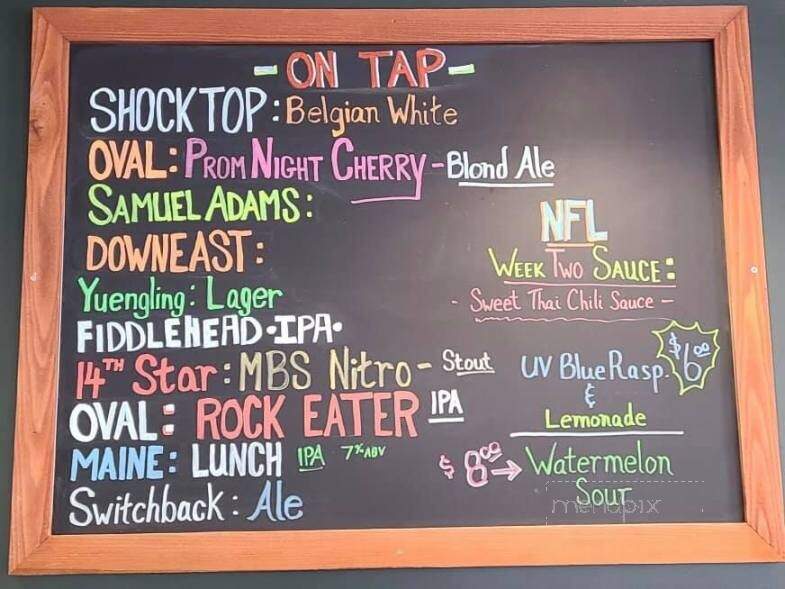 - ON TAP -
SHOCKTOP: Belgian White
OVAL: PROM NIGHT CHERRY - Blond Ale
SAMUEL ADAMS:
DOWNEAST:
Yuengling: Lager
FIDDLEHEAD • IPA •
14TH Star: MBS Nitro - Stout
OVAL: ROCK EATER IPA
MAINE: LUNCH IPA 7% ABV
Switchback: Ale
NFL
WEEK TWO SAUCE:
- Sweet Thai Chili Sauce -
UV Blue Rasp. $6.00
&
Lemonade
$8.00 → Watermelon
Sour
menupix